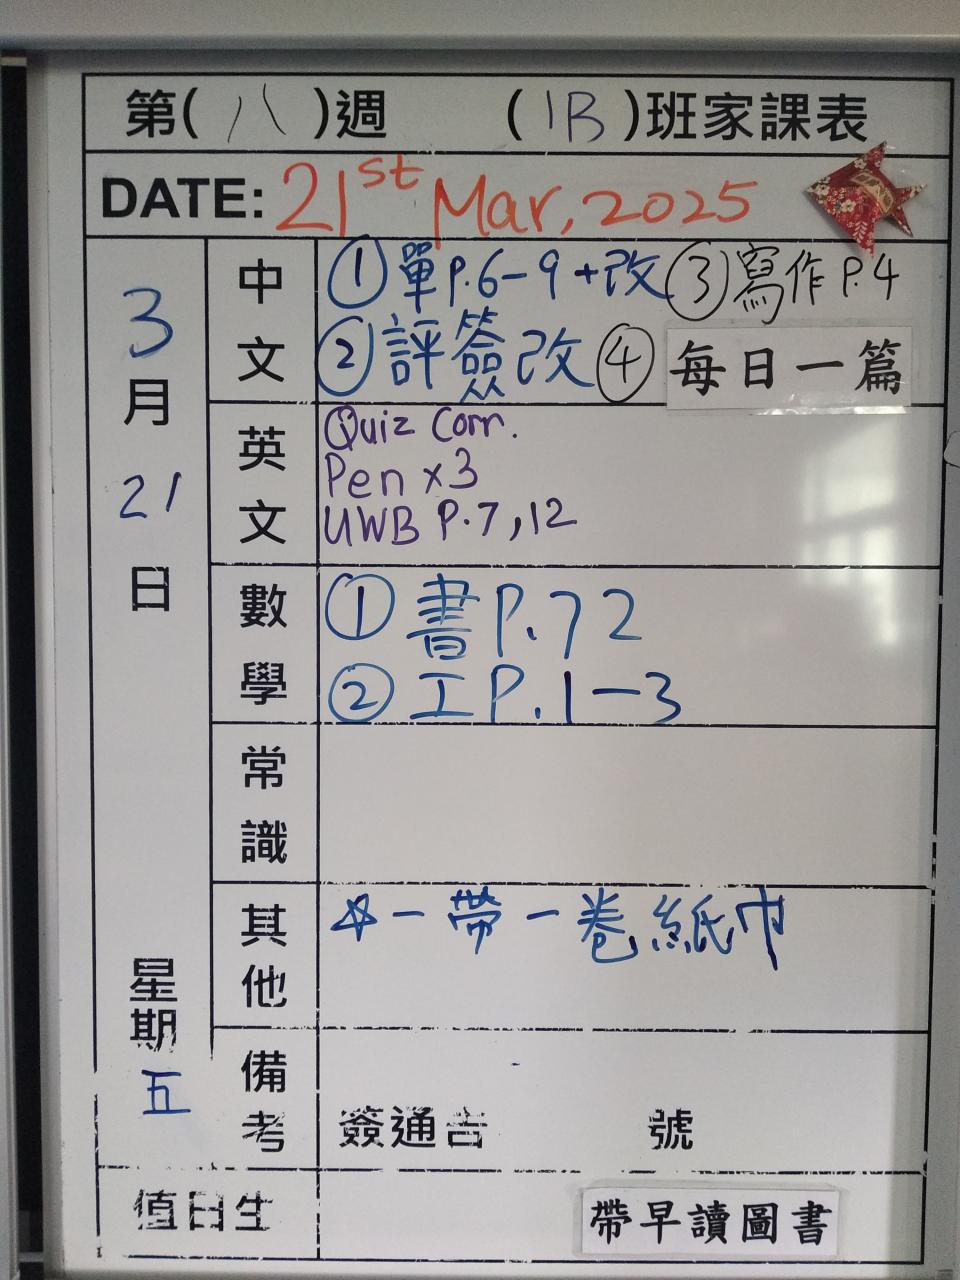 第(八)週 (1B)班家課表
DATE: 21st Mar, 2025
3月21日
星期五
中文
①單P.6-9+改③寫作P.4
②評簽改④每日一篇
英文
Quiz Corr.
Pen x3
UWB P.7,12
數學
①書P.72
②工P.1-3
常識
其他
☆一帶一卷紙巾
備考
簽通告 號
值日生
帶早讀圖書